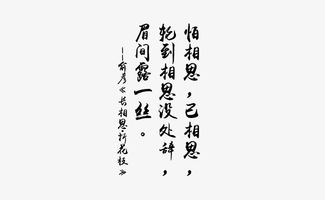 怕相思，已相思，
轮到相思没处辞，
眉间露一丝。
——俞彦《长相思·折花枝》